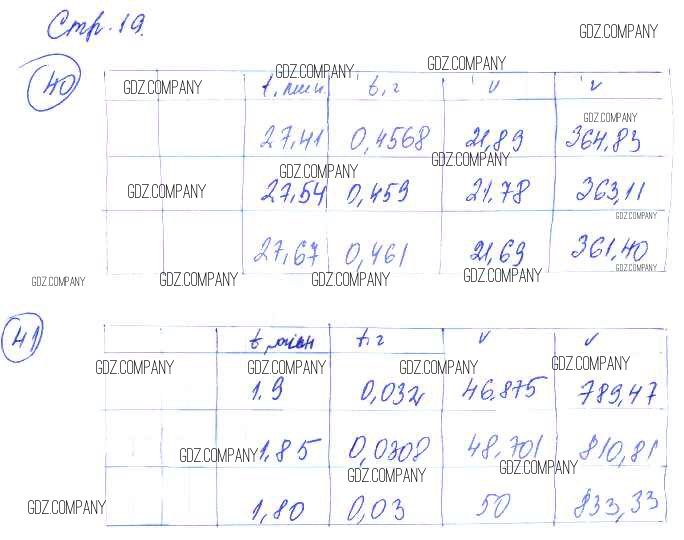 Стр. 19.
GDZ.COMPANY
40
GDZ.COMPANY GDZ.COMPANY GDZ.COMPANY
t, мин t, г v v
GDZ.COMPANY
27,41 0,4568 21,89 364,83
GDZ.COMPANY GDZ.COMPANY
GDZ.COMPANY 27,54 0,459 21,78 363,11
GDZ.COMPANY
27,67 0,461 21,69 361,40
GDZ.COMPANY GDZ.COMPANY GDZ.COMPANY GDZ.COMPANY GDZ.COMPANY
41
t, мин t, г v v
GDZ.COMPANY GDZ.COMPANY GDZ.COMPANY GDZ.COMPANY
1.9 0,032 46,875 789,47
GDZ.COMPANY 1,85 0,0308 48,701 810,81
GDZ.COMPANY GDZ.COMPANY
GDZ.COMPANY 1,80 0,03 50 833,33